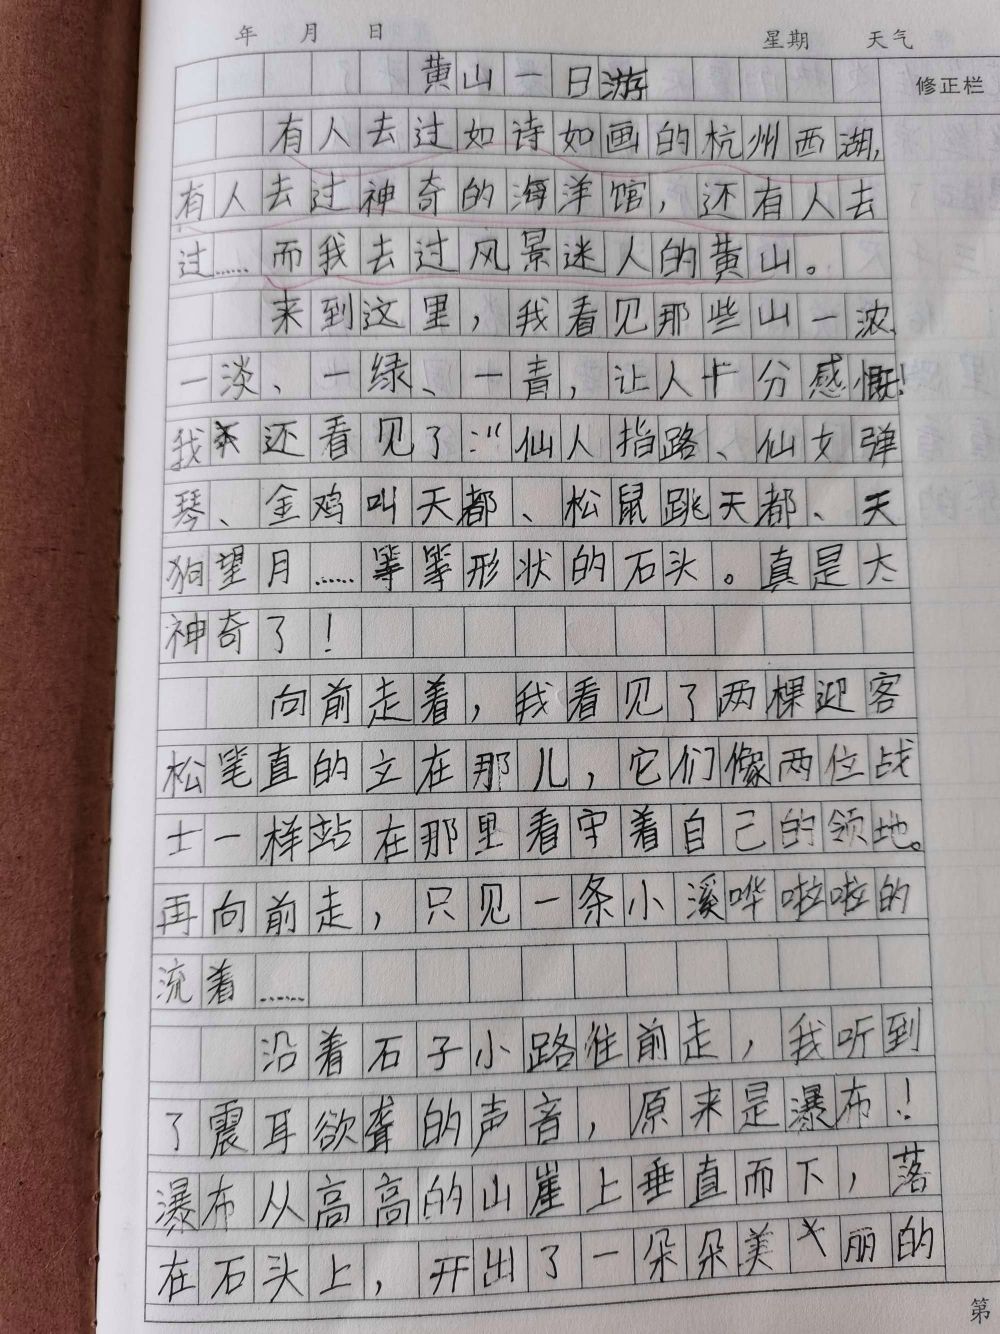 年 月 日 星期 天气
黄山一日游 修正栏
有人去过如诗如画的杭州西湖,
有人去过神奇的海洋馆，还有人去
过……而我去过风景迷人的黄山。
来到这里，我看见那些山一浓
一淡、一绿、一青，让人十分感慨!
我还看见了："仙人指路、仙女弹
琴、金鸡叫天都、松鼠跳天都、天
狗望月……等等形状的石头。真是太
神奇了！
向前走着，我看见了两棵迎客
松笔直的立在那儿，它们像两位战
士一样站在那里看守着自己的领地。
再向前走，只见一条小溪哗啦啦的
流着……
沿着石子小路往前走，我听到
了震耳欲聋的声音，原来是瀑布！
瀑布从高高的山崖上垂直而下，落
在石头上，开出了一朵朵美丽的
第